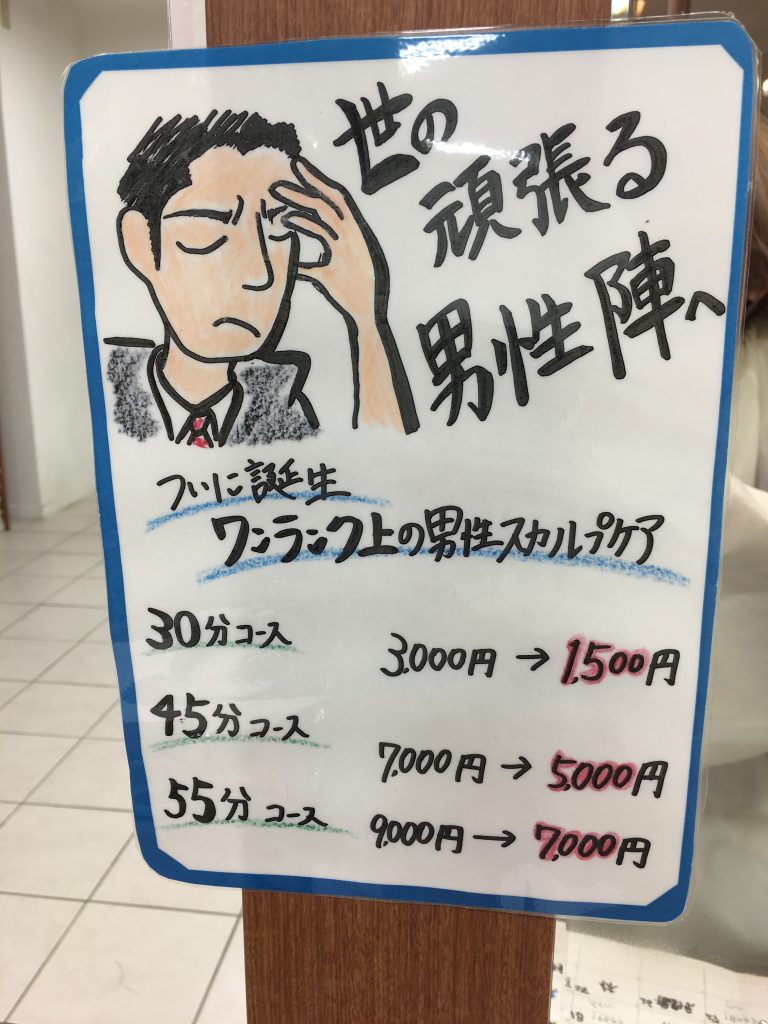 世の
頑張る
男性陣へ
ついに誕生
ワンランク上の男性スカルプケア
30分コース 3,000円 → 1,500円
45分コース 7,000円 → 5,000円
55分コース 9,000円 → 7,000円